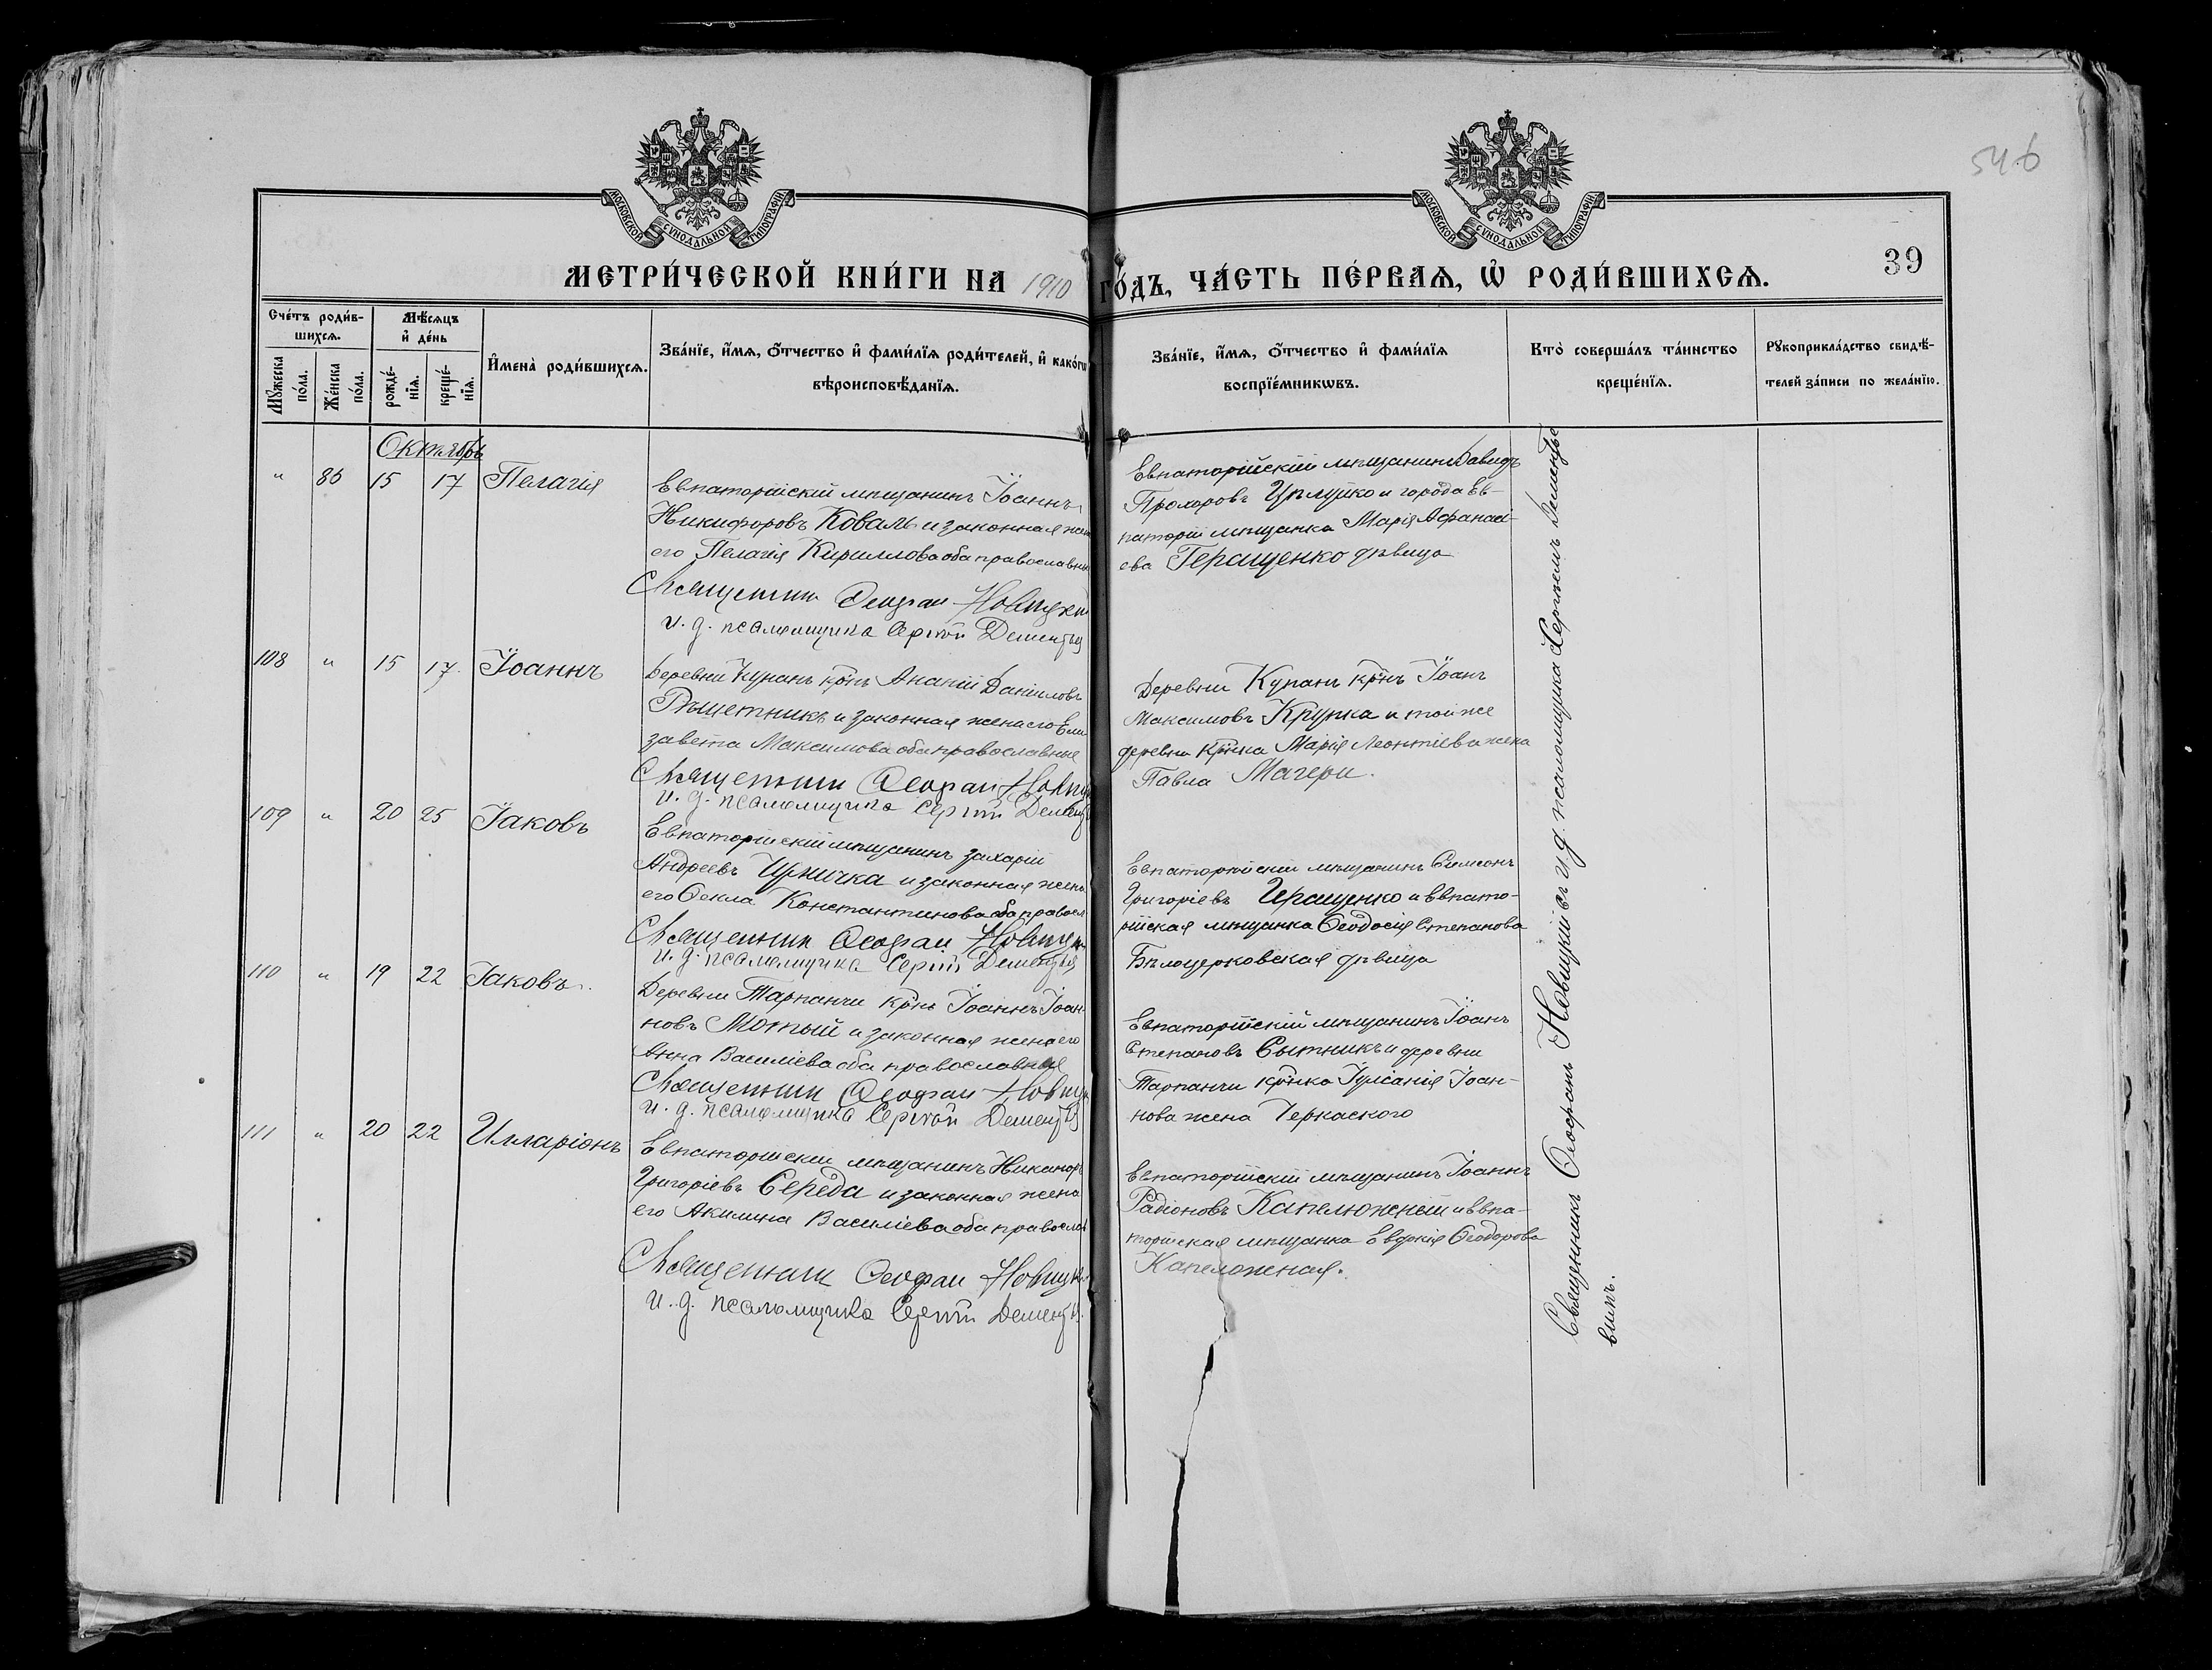 546
39
МОСКОВСКОЙ СѴНОДАЛЬНОЙ ТИПОГРАФІИ
МОСКОВСКОЙ СѴНОДАЛЬНОЙ ТИПОГРАФІИ
МЕТРИ́ЧЕСКОЙ КНИ́ГИ НА 1910 ГО́ДЪ, ЧА́СТЬ ПЕ́РВАѦ, Ѿ РОДИ́ВШИХСѦ.
Сче́тъ роди́в-
шихсѧ.
Мꙋжеска по́ла.
Же́нска по́ла.
Мѣ́сѧцъ
и҆ де́нь
рожде́-
нїѧ.
креще́-
нїѧ.
И҆мена̀ роди́вшихсѧ.
Зва́нїе, и҆́мѧ, ѻ҆́тчество и҆ фами́лїѧ роди́телей, и҆ како́гѡ
вѣроисповѣ́данїѧ.
Зва́нїе, и҆́мѧ, ѻ҆́тчество и҆ фами́лїѧ
воспрїе́мникѡвъ.
Кто̀ соверша́лъ та́инство
креще́нїѧ.
Рꙋкоприкла́дство свидѣ́-
телей за́писи по жела́нїю.
Октябрь
" 86 15 17 Пелагія
Евпаторійскій мѣщанинъ Іоаннъ
Никифоровъ Коваль и законная жена
его Пелагія Кириллова оба православные
Священникъ Ѳеофан Новицкій
и. д. псаломщика Сергій Дементьев
Евпаторійскій мѣщанинъ Давидъ
Прохоровъ Цѣлуйко и города Ев-
паторіи мѣщанка Марія Афанасі-
ева Геращенко дѣвица
108 " 15 17. Іоаннъ
Деревни Кунанъ кр-нъ Ананій Даніиловъ
Рѣшетникъ и законная жена его Ели
завета Максимова оба православные
Священникъ Ѳеофан Новицк
и. д. псаломщика Сергій Дементь
Деревни Кунанъ кр-нъ Іоанъ
Максимовъ Крупка и той же
деревни кр-нка Марія Леонтіева жена
Павла Магери.
109 " 20 25 Іаковъ
Евпаторійскій мѣщанинъ Захарій
Андреевъ и законная жена
его Ѳекла Константинова оба правосл
Священникъ Ѳеофан Новицк
и. д. псаломщика Сергій Дементьев
Евпаторійскій мѣщанинъ Симеонъ
Григоріевъ Геращенко и Евпато-
рійская мѣщанка Ѳеодосія Степанова
Бѣлоцерковская дѣвица
110 " 19 22 Іаковъ.
Деревни Тарпанчи кр-нъ Іоаннъ Іоан-
новъ Мотый и законная жена его
Анна Василіева оба православные
Священникъ Ѳеофан Новицк
и. д. псаломщика Сергій Дементьев
Евпаторійскій мѣщанинъ Іоанъ
Степановъ Сытникъ и деревни
Тарпанчи кр-нка Іуліанія Іоан-
нова жена Черкаского
111 " 20 22 Илларіонъ
Евпаторійскій мѣщанинъ Никаноръ
Григоріевъ Середа и законная жена
его Акилина Василіева оба правосла
Священникъ Ѳеофан Новицк
и. д. псаломщика Сергій Дементьев.
Евпаторійскій мѣщанинъ Іоаннъ
Радіоновъ Капелюжный и Евпа-
торійская мѣщанка Евдокія Ѳеодорова
Капелюжная.
Священникъ Ѳеофанъ Новицкій съ и. д. псаломщика Сергіемъ Дементье
вымъ.